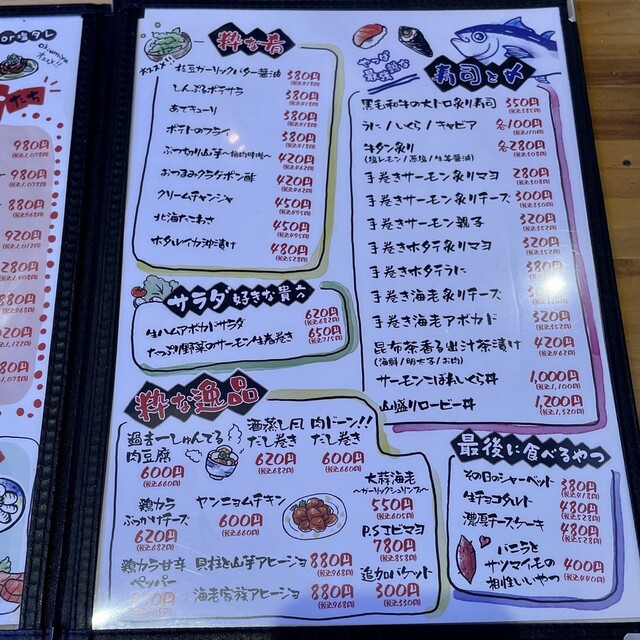 or塩タレ
たち
980円
880円
920円
280円
粋な肴
枝豆ガーリックバター醤油 380円
(税込418円)
しんぷるポテサラ 380円
(税込418円)
あてキューリ 380円
(税込418円)
ポテトのフライ 380円
(税込418円)
ぶつ切り山芋~梅肉味噌~ 420円
(税込462円)
おつまみクラゲポン酢 420円
(税込462円)
クリームチャンジャ 450円
(税込495円)
北海たこわさ 450円
(税込495円)
ホタルイカ沖漬け 480円
(税込528円)
サラダ好きな貴方
生ハムアボカドサラダ 620円
(税込682円)
たっぷり野菜のサーモン生春巻き 650円
(税込715円)
粋な逸品
過去一しゅんでる
肉豆腐
600円
(税込660円)
酒蒸し風
だし巻き
620円
(税込682円)
肉ドーン!!
だし巻き
600円
(税込660円)
鶏カラ
ぶっかけチーズ
620円
(税込682円)
ヤンニョムチキン
600円
(税込660円)
大蒜海老
~ガーリックシュリンプ~
550円
(税込605円)
P.Sエビマヨ
780円
(税込858円)
鶏カラ甘辛
ペッパー
貝柱と山芋アヒージョ 880円
(税込968円)
海老家族アヒージョ 880円
(税込968円)
追加バケット
300円
(税込330円)
寿司と〆
黒毛和牛の大トロ炙り寿司 350円
(税込385円)
うに/いくら/キャビア 各100円
(税込110円)
牛タン炙り 各280円
(税込308円)
手巻きサーモン炙りマヨ 280円
(税込308円)
手巻きサーモン炙りチーズ 300円
(税込330円)
手巻きサーモン親子 320円
(税込352円)
手巻きホタテ炙りマヨ 320円
(税込352円)
手巻きホタテうに 380円
手巻き海老炙りチーズ
手巻き海老アボカド 320円
(税込352円)
昆布茶香る出汁茶漬け 420円
(海鮮/明太子/お肉) (税込462円)
サーモンこぼれいくら丼 1,000円
(税込1,100円)
山盛りロービー丼 1,200円
(税込1,320円)
最後に食べるやつ
その日のシャーベット 380円
(税込418円)
生チョコタルト 480円
(税込528円)
濃厚チーズケーキ 480円
(税込528円)
バニラと
サツマイモの
相性いいやつ 400円
(税込440円)